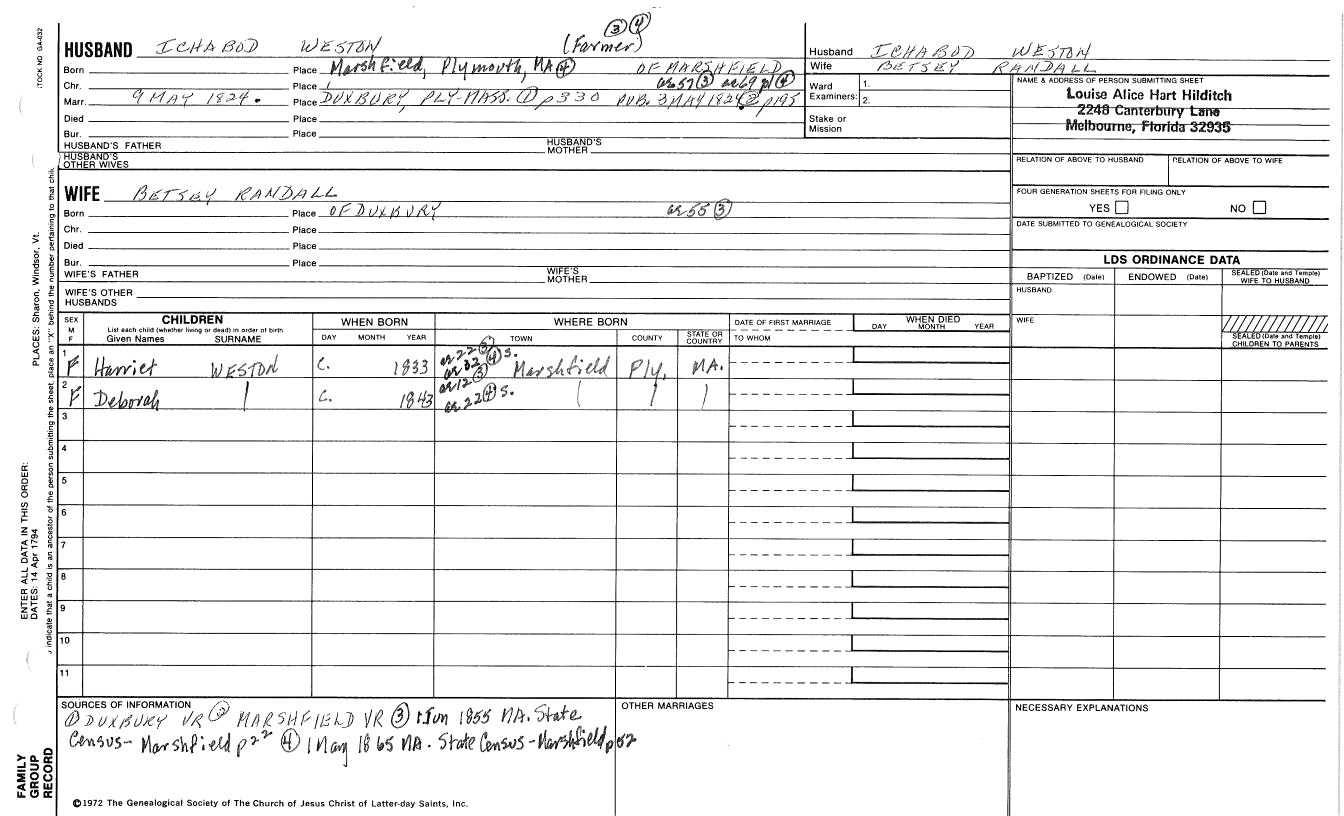 ③ ④
HUSBAND ICHABOD WESTON (Farmer)
Born Place Marshfield, Plymouth, MA ④ OF MARSHFIELD
Chr. Place ae 57 ③ ae 69 p1 ④
Marr. 9 MAY 1824. Place DUXBURY, PLY-MASS. ① p330 PUB. 3 MAY 1824 ② p195
Died Place
Bur. Place
HUSBAND'S FATHER HUSBAND'S MOTHER
HUSBAND'S OTHER WIVES
Husband ICHABOD WESTON
Wife BETSEY RANDALL
Ward Examiners: 1.
2.
Stake or Mission
NAME & ADDRESS OF PERSON SUBMITTING SHEET
Louise Alice Hart Hilditch
2248 Canterbury Lane
Melbourne, Florida 32935
RELATION OF ABOVE TO HUSBAND RELATION OF ABOVE TO WIFE
FOUR GENERATION SHEETS FOR FILING ONLY
YES NO
DATE SUBMITTED TO GENEALOGICAL SOCIETY
WIFE BETSEY RANDALL
Born Place OF DUXBURY ae 55 ③
Chr. Place
Died Place
Bur. Place
WIFE'S FATHER WIFE'S MOTHER
WIFE'S OTHER HUSBANDS
LDS ORDINANCE DATA
BAPTIZED (Date) ENDOWED (Date) SEALED (Date and Temple) WIFE TO HUSBAND
HUSBAND
WIFE
SEALED (Date and Temple) CHILDREN TO PARENTS
SEX M F
CHILDREN
List each child (whether living or dead) in order of birth
Given Names SURNAME
WHEN BORN
DAY MONTH YEAR
WHERE BORN
TOWN COUNTY STATE OR COUNTRY
DATE OF FIRST MARRIAGE
TO WHOM
WHEN DIED
DAY MONTH YEAR
1 F Harriet WESTON C. 1833 ae 22 ③ ae 32 ④ S. Marshfield Ply. MA.
2 F Deborah C. 1843 ae 12 ③ ae 22 ④ S.
3
4
5
6
7
8
9
10
11
SOURCES OF INFORMATION
① DUXBURY VR ② MARSHFIELD VR ③ 1 Jun 1855 MA. State
Census- Marshfield p22 ④ 1 May 1865 MA. State Census - Marshfield p52
OTHER MARRIAGES
NECESSARY EXPLANATIONS
©1972 The Genealogical Society of The Church of Jesus Christ of Latter-day Saints, Inc.
STOCK NO. GA-032
PLACES: Sharon, Windsor, Vt.
ENTER ALL DATA IN THIS ORDER:
DATES: 14 Apr 1794
indicate that a child is an ancestor of the person submitting the sheet, place an "X" behind the number pertaining to that chil
FAMILY
GROUP
RECORD